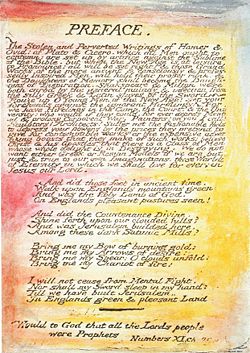 PREFACE.
The Stolen and Perverted Writings of Homer &
Ovid: of Plato & Cicero. which all Men ought to
contemn: are set up by artifice against the Sublime
of the Bible. but when the New Age is at leisure
to Pronounce: all will be set right: & those Grand
Works of the more ancient & consciously & profes-
sedly Inspired Men, will hold their proper rank, &
the Daughters of Memory shall become the Daugh-
ters of Inspiration. Shakspeare & Milton were
both curbd by the general malady & infection from
the silly Greek & Latin slaves of the Sword.
Rouse up O Young Men of the New Age! set your
foreheads against the ignorant Hirelings! For
we have Hirelings in the Camp, the Court, & the Uni-
versity: who would if they could, for ever depress Men-
tal & prolong Corporeal War. Painters! on you I call!
Sculptors! Architects! Suffer not the fashonable Fools
to depress your powers by the prices they pretend to
give for contemptible works or the expensive advert-
izing boasts that they make of such works; believe
Christ & his Apostles that there is a Class of Men
whose whole delight is in Destroying. We do not
want either Greek or Roman Models if we are but
just & true to our own Imaginations, those Worlds
of Eternity in which we shall live for ever; in
Jesus our Lord.
And did those feet in ancient time,
Walk upon Englands mountains green:
And was the holy Lamb of God,
On Englands pleasant pastures seen!
And did the Countenance Divine,
Shine forth upon our clouded hills?
And was Jerusalem builded here,
Among these dark Satanic Mills?
Bring me my Bow of burning gold:
Bring me my Arrows of desire:
Bring me my Spear: O clouds unfold:
Bring me my Chariot of fire!
I will not cease from Mental Fight,
Nor shall my Sword sleep in my hand:
Till we have built Jerusalem,
In Englands green & pleasant Land
Would to God that all the Lords people
were Prophets
Numbers XI. ch